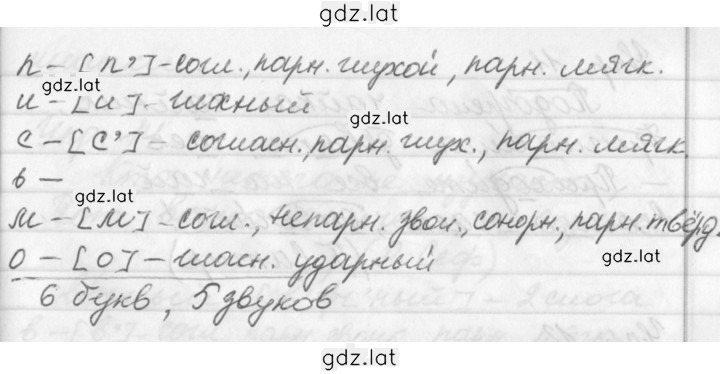 gdz.lat
п – [п’] – согл., парн. глухой, парн. мягк.
gdz.lat
и – [и] – гласный
gdz.lat
с – [с’] – согласн., парн. глух., парн. мягк.
ь –
gdz.lat
м – [м] – согл., непарн. звон., сонорн., парн. твёрд.
о – [о] – гласн. ударный
gdz.lat
6 букв, 5 звуков
gdz.lat